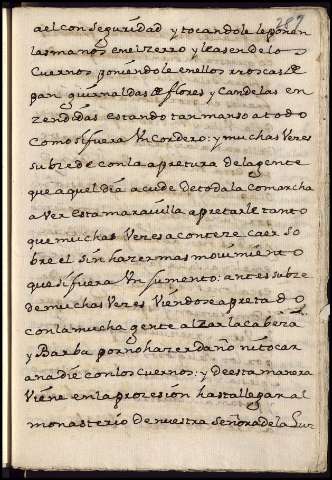 287
a el con seguridad y tocandole le ponen
las manos en el zerro y le asen de los
cuernos poniendole en ellos rroscas de
pan guirnaldas de flores y candelas en
zendidas estando tan manso a todo
como si fuera Un cordero: y muchas Vezes
subzede con la apretura de la gente
que a quel dia acude de toda la comarcha
a Ver esta marauilla apretarle tanto
que muchas Vezes a conteze caer so
bre el sin hazer mas mouimiento
que si fuera Un jumento: antes subze
de muchas Vezes Viendose apretado
con la mucha gente alzar la cabeza
y Barba por no hazer daño ni tocar
a nadie con los cuernos: y de esta manera
Viene en la prozesion hasta llegar al
monasterio de nuestra señora de la Luz